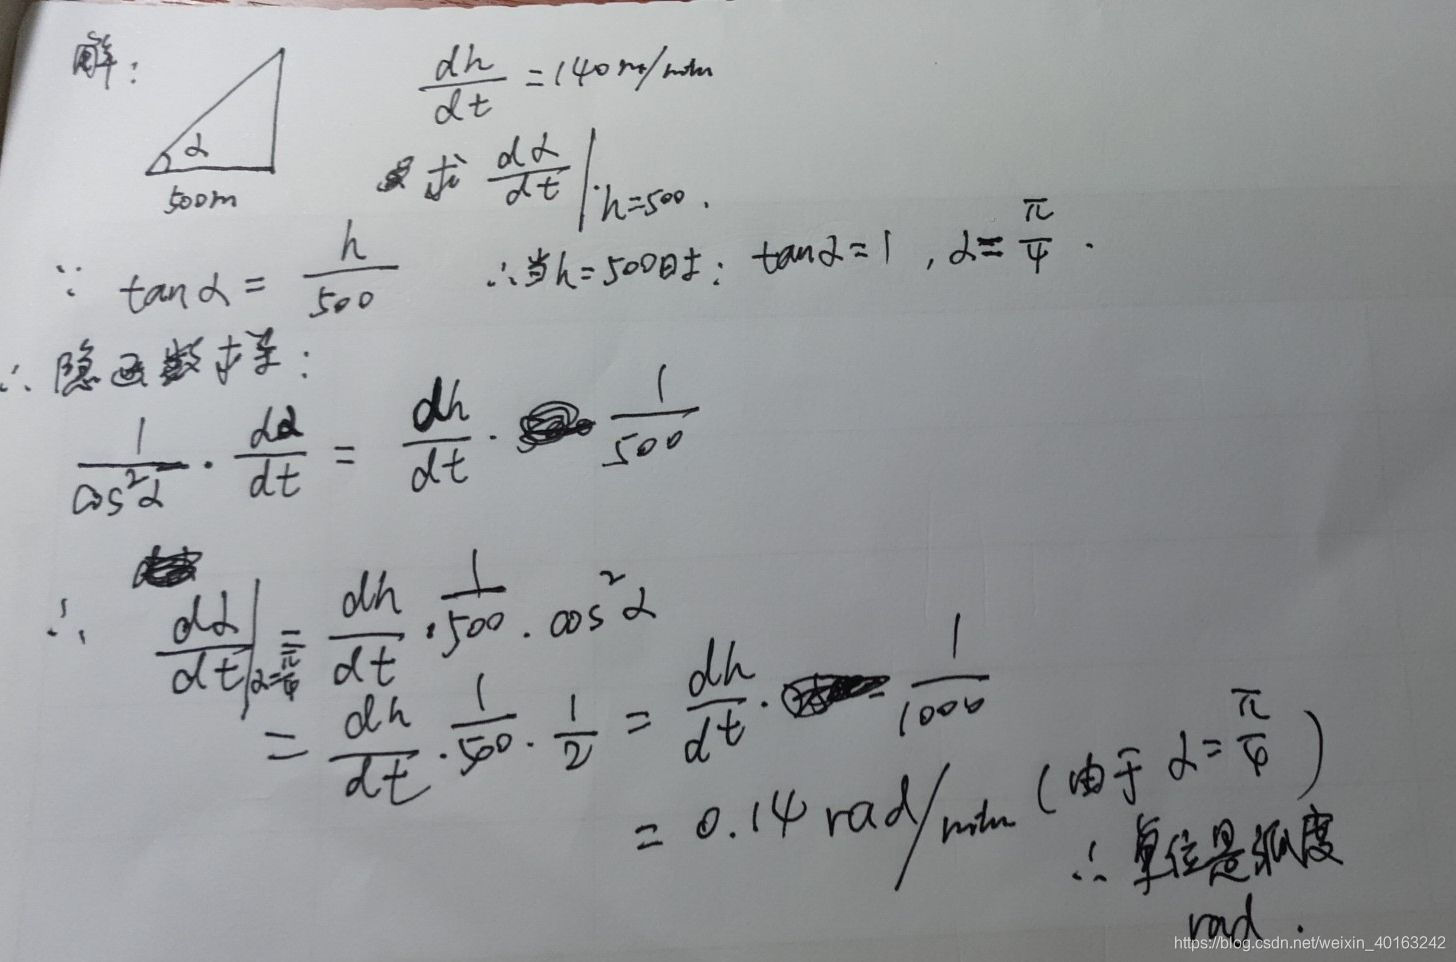 解：
α
500m
dh/dt = 140m/min
求 dα/dt | h=500 .
∵ tanα = h/500 ∴当h=500时： tanα=1 , α=π/4 .
∴ 隐函数求导：
1/cos²α · dα/dt = dh/dt · 1/500
∴ dα/dt | α=π/4 = dh/dt · 1/500 · cos²α
= dh/dt · 1/500 · 1/2 = dh/dt · 1/1000
= 0.14 rad/min (由于 α=π/4)
∴ 单位是弧度
rad .
https://blog.csdn.net/weixin_40163242